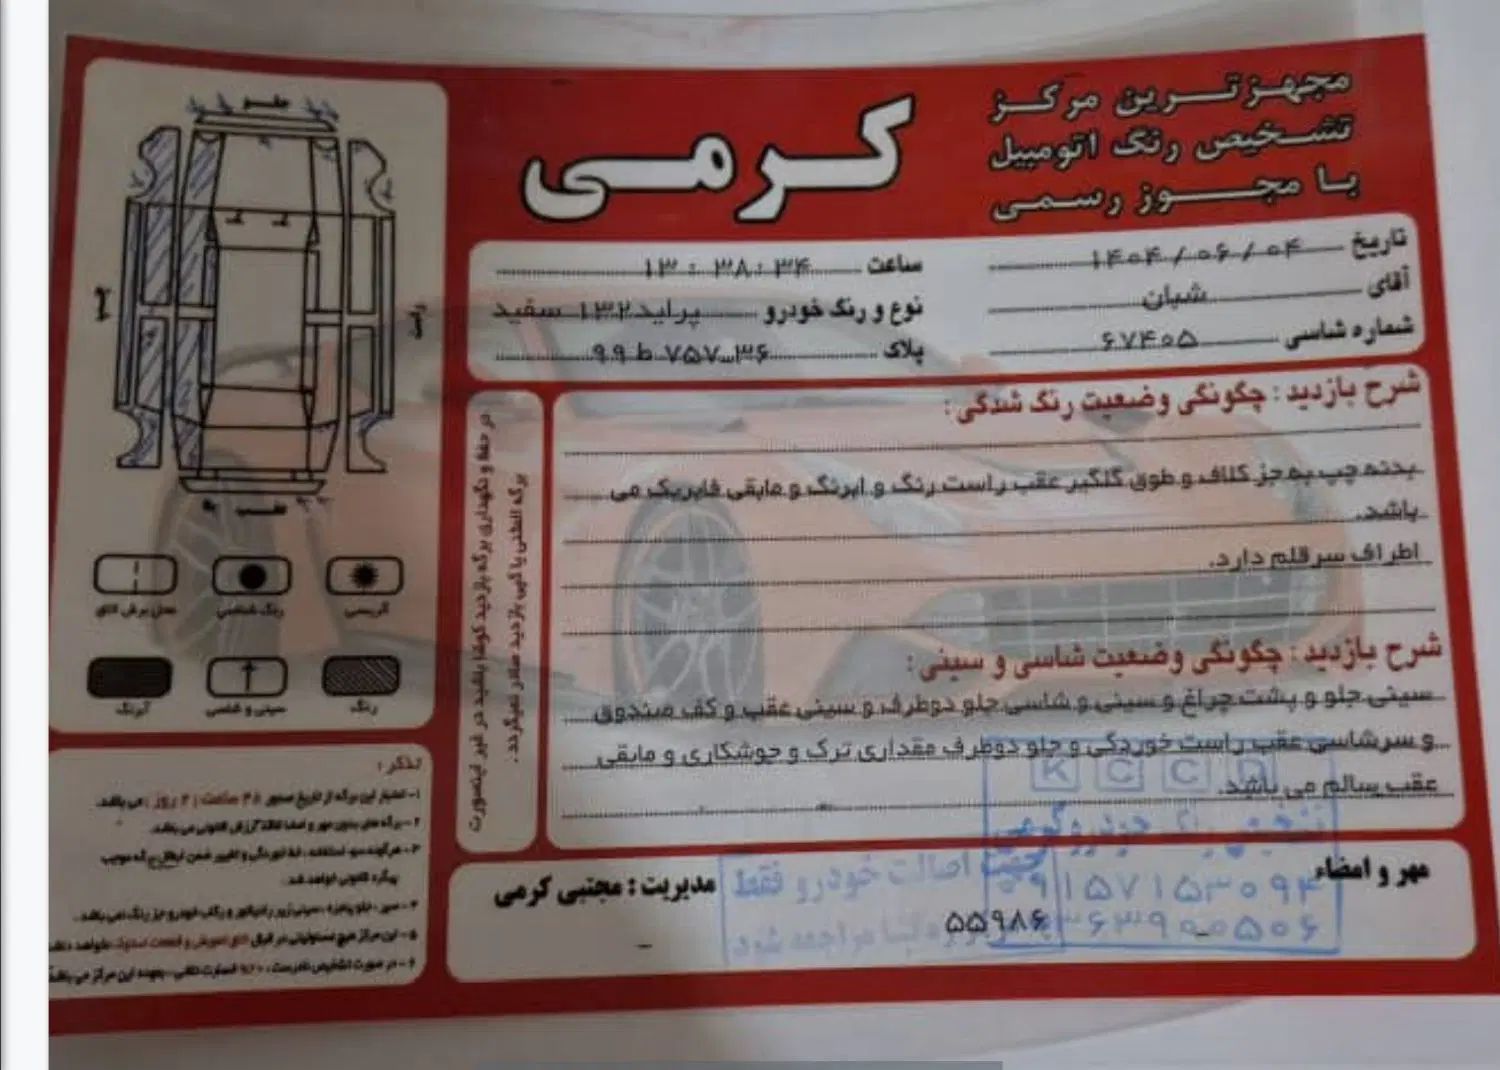 مجهزترین مرکز
تشخیص رنگ اتومبیل
با مجوز رسمی
کرمی
تاریخ ۱۴۰۴/۰۶/۰۴
ساعت ۱۳:۳۸:۳۴
آقای شبان
نوع و رنگ خودرو پراید ۱۳۲ سفید
شماره شاسی ۶۷۴۰۵
پلاک ۳۶ ۷۵۷ ط ۹۹
شرح بازدید : چگونگی وضعیت رنگ شدگی :
بدنه چپ به جز کلاف و طوق گلگیر عقب راست رنگ و ابرنگ و مابقی فابریک می
باشد.
اطراف سر قلم دارد.
شرح بازدید : چگونگی وضعیت شاسی و سینی :
سینی جلو و پشت چراغ و سینی و شاسی جلو دوطرف و سینی عقب و کف صندوق
و سرشاسی عقب راست خوردگی و جلو دوطرف مقداری ترک و جوشکاری و مابقی
عقب سالم می باشد.
مهر و امضاء
مدیریت : مجتبی کرمی
۵۵۹۸۶
K C C D
۰۹۱۵۷۱۵۳۰۹۴
۳۶۳۹۰۰۵۰۶
جهت اصالت خودرو فقط
مراجعه شود
جلو
چپ
راست
عقب
گریسی
رنگ شاسی
محل برش اتاق
رنگ
سینی و شاسی
آبرنگ
در حفظ و نگهداری برگه بازدید کوشا باشید در غیر اینصورت
برگه المثنی یا کپی بازدید صادر نمیگردد.
تذکر :
۱- اعتبار این برگه از تاریخ صدور ۴۸ ساعت ( ۲ روز ) می باشد.
۲- برگه های بدون مهر و امضا فاقد ارزش قانونی می باشد.
۳- هرگونه سوء استفاده ، خط خوردگی و تغییر ضمن ابطال برگه موجب
پیگرد قانونی خواهد شد.